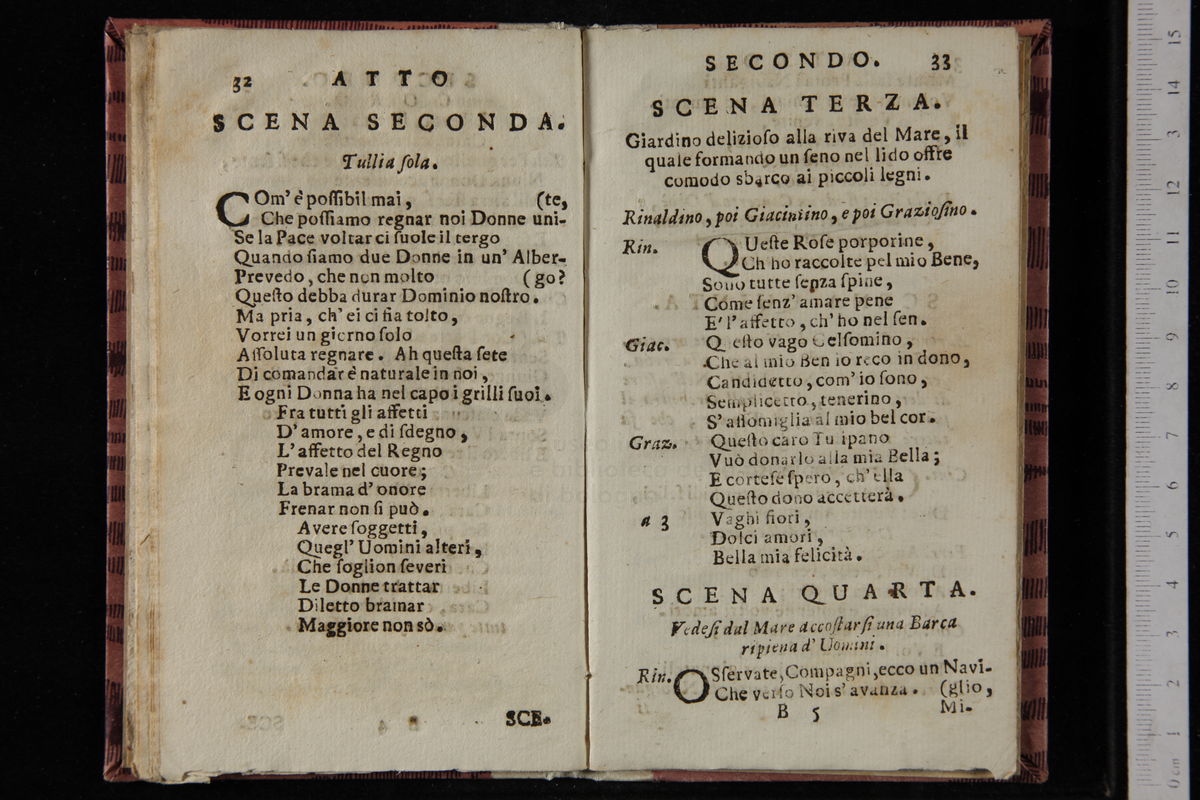 32 ATTO
SCENA SECONDA.
Tullia ſola.
COm' è poſſibil mai, (te,
Che poſſiamo regnar noi Donne uni-
Se la Pace voltarci ſuole il tergo
Quando ſiamo due Donne in un' Alber-
Prevedo, che non molto (go?
Queſto debba durar Dominio noſtro.
Ma pria, ch' ei ci ſia tolto,
Vorrei un giorno ſolo
Aſſoluta regnare. Ah queſta ſete
Di comandar è naturale in noi,
E ogni Donna ha nel capo i grilli ſuoi.
Fra tutti gli affetti
D' amore, e di ſdegno,
L' affetto del Regno
Prevale nel cuore;
La brama d' onore
Frenar non ſi può.
Avere ſoggetti,
Quegl' Uomini alteri,
Che ſoglion ſeveri
Le Donne trattar
Diletto bramar
Maggiore non sò.
SCE.
SECONDO. 33
SCENA TERZA.
Giardino delizioſo alla riva del Mare, il
quale formando un ſeno nel lido offre
comodo sbarco ai piccoli legni.
Rinaldino, poi Giacintino, e poi Grazioſino.
Rin. QUeſte Roſe porporine,
Ch' ho raccolte pel mio Bene,
Sono tutte ſenza ſpine,
Come ſenz' amare pene
E' l' affetto, ch' ho nel ſen.
Giac. Q eſto vago Gelſomino,
Che al mio Ben io reco in dono,
Candidetto, com' io ſono,
Semplicetto, tenerino,
S' aſſomiglia al mio bel cor.
Graz. Queſto caro Tu ipano
Vuò donarlo alla mia Bella;
E corteſe ſpero, ch' ella
Queſto dono accetterà.
a 3 Vaghi fiori,
Dolci amori,
Bella mia felicità.
SCENA QUARTA.
Vedeſi dal Mare accoſtarſi una Barca
ripiena d' Uomini.
Rin. OSſervate, Compagni, ecco un Navi-
Che verſo Noi s' avanza. (glio,
B 5 Mi-